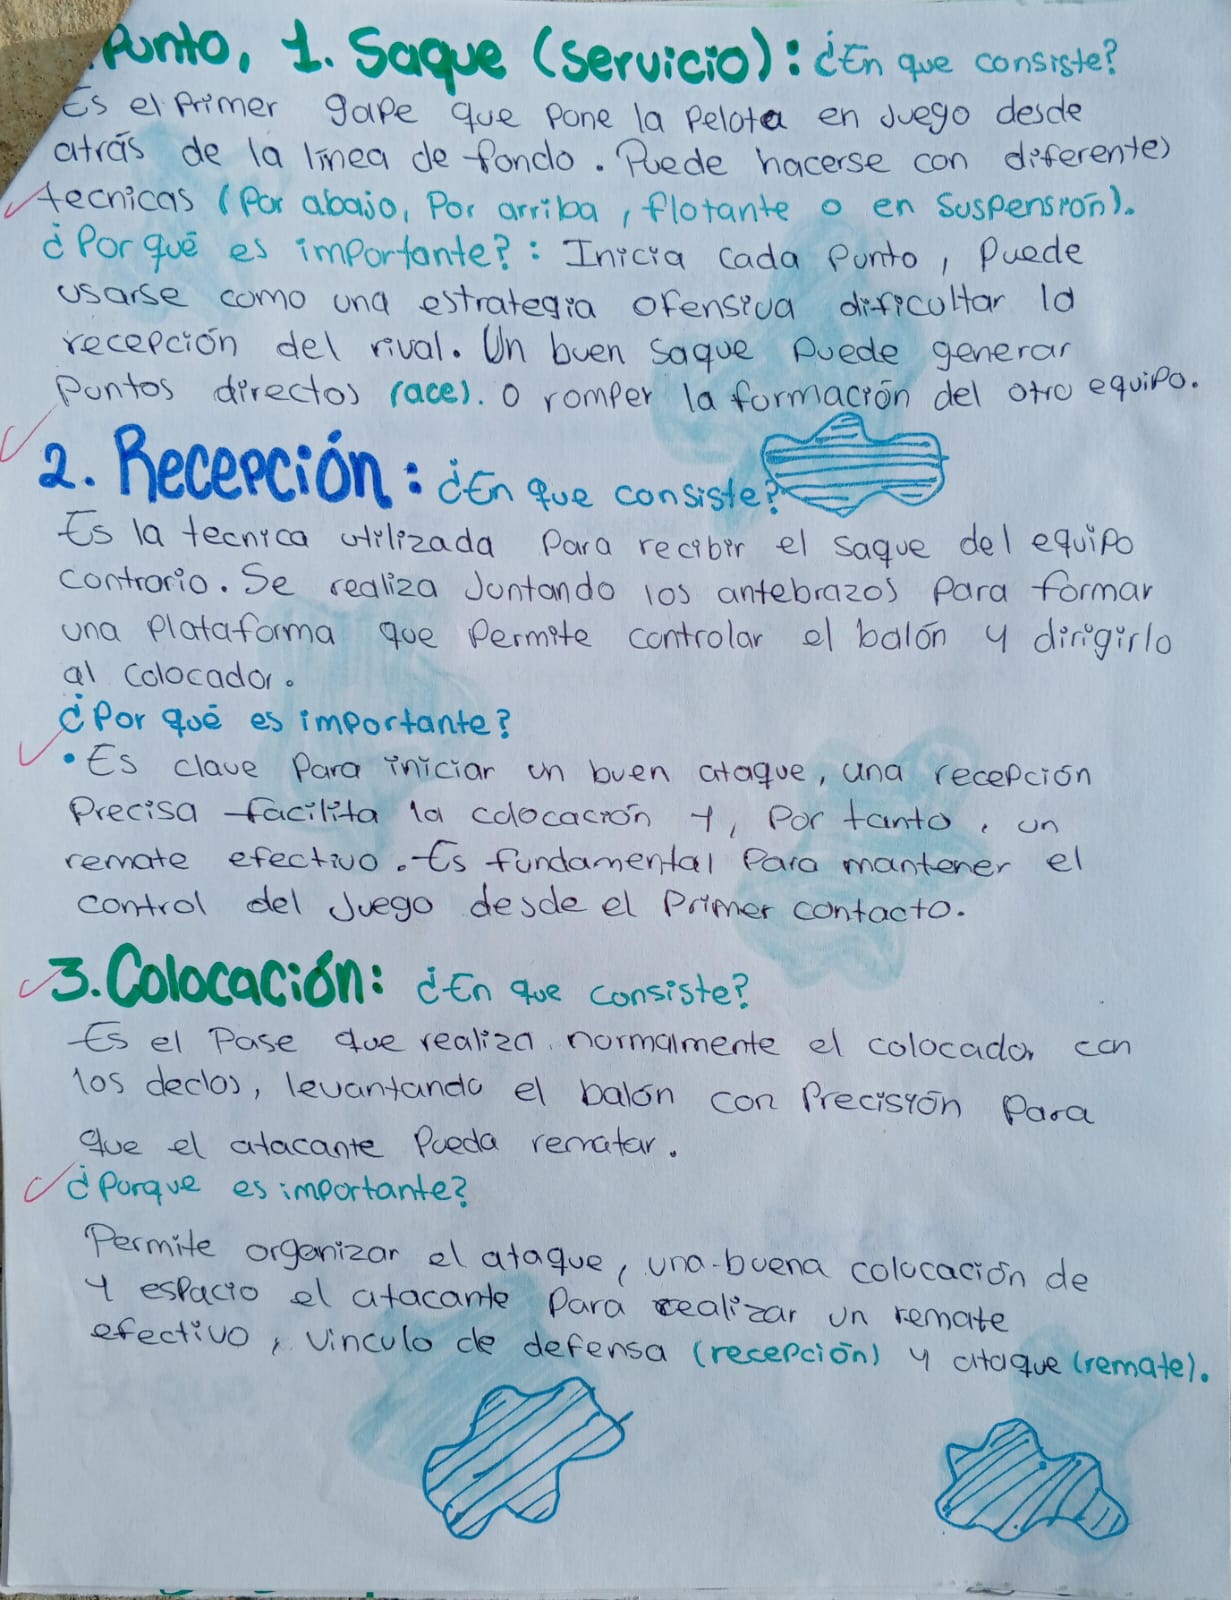 Punto, 1. Saque (servicio): ¿En que consiste?
Es el Primer gape que pone la pelota en Juego desde
atrás de la línea de fondo. Puede hacerse con diferentes
tecnicas (Por abajo, Por arriba, flotante o en Suspensión).
¿Por qué es importante?: Inicia cada Punto, Puede
usarse como una estrategia ofensiva dificultar la
recepción del rival. Un buen saque puede generar
Puntos directos (ace). o romper la formación del otro equipo.
2. Recepción: ¿En que consiste?
Es la tecnica utilizada Para recibir el saque del equipo
contrario. Se realiza Juntando los antebrazos Para formar
una Plataforma que Permite controlar el balón y dirigirlo
al colocador.
¿Por qué es importante?
• Es clave Para iniciar un buen ataque, una recepción
Precisa facilita la colocación y, Por tanto, un
remate efectivo. Es fundamental Para mantener el
control del Juego desde el Primer contacto.
3. Colocación: ¿En que consiste?
Es el Pase que realiza normalmente el colocador con
los declos, levantando el balón con Precisión Para
que el atacante Pueda rematar.
¿Porque es importante?
Permite organizar el ataque, una buena colocación de
y espacio el atacante Para realizar un remate
efectivo, vinculo de defensa (recepción) y ataque (remate).